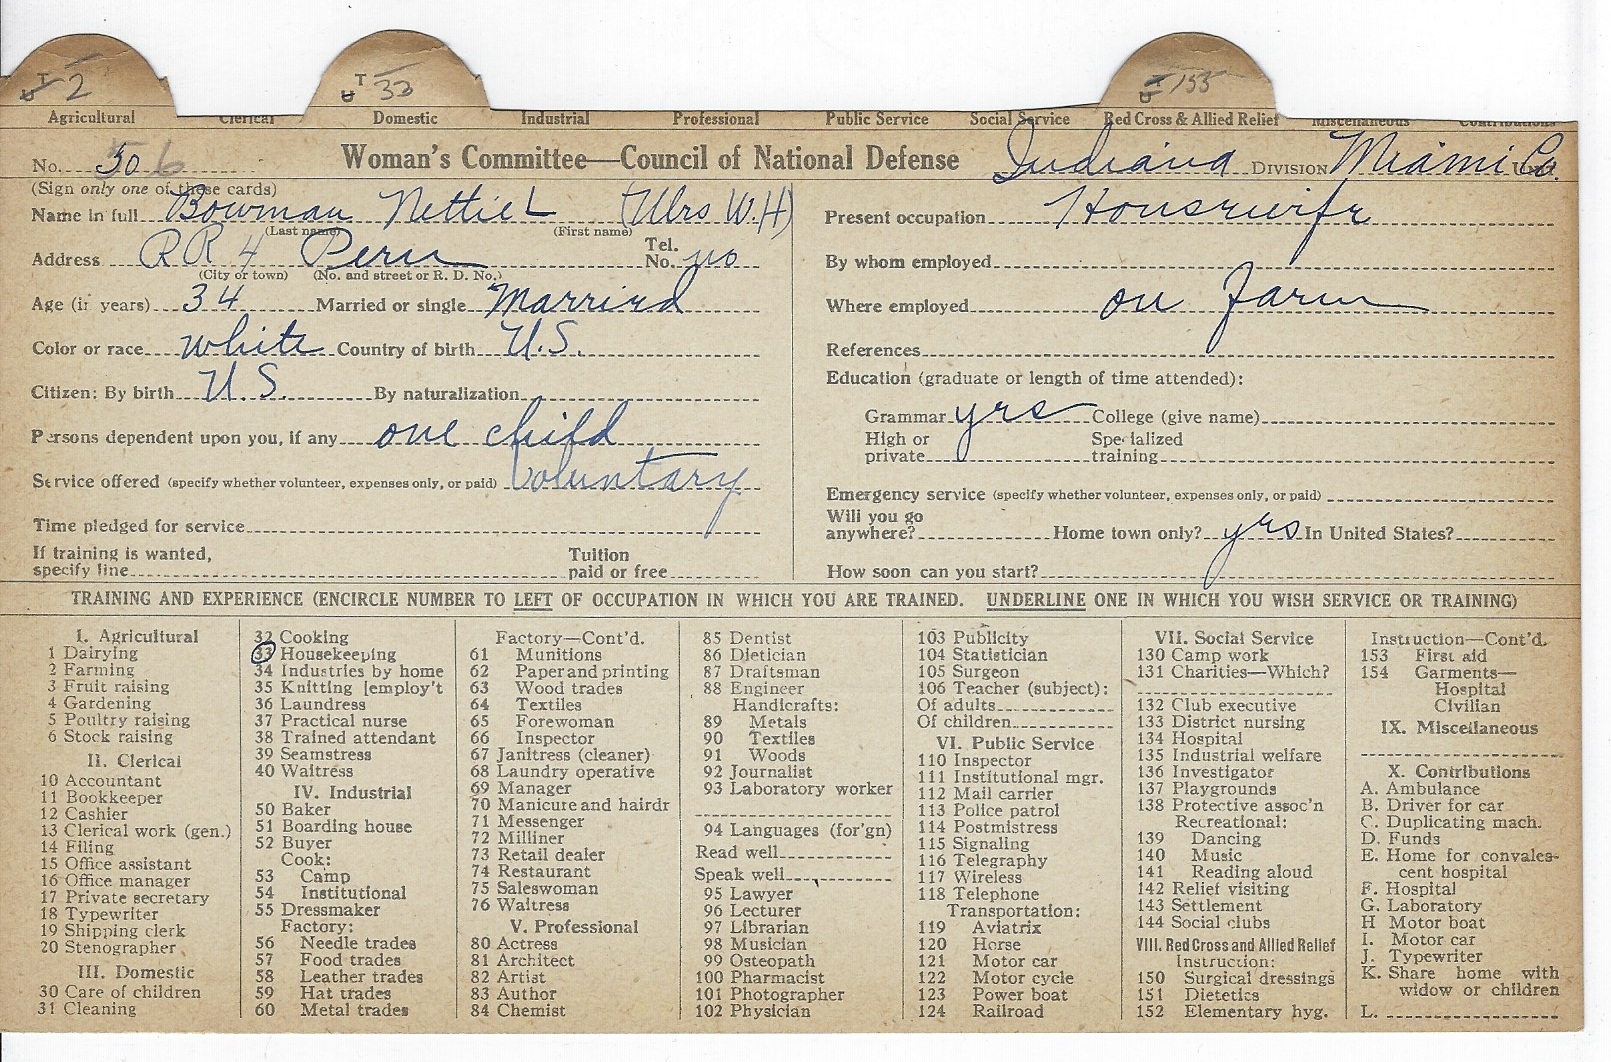 T 2 T 33 153
U U U
Agricultural Clerical Domestic Industrial Professional Public Service Social Service Red Cross & Allied Relief Miscellaneous Contributions
No. 506 Woman's Committee—Council of National Defense Indiana DIVISION Miami Co.
(Sign only one of these cards)
Name in full Bowman Nettie L (Mrs W.H)
(Last name) (First name)
Address RR 4 Peru Tel. No. no
(City or town) (No. and street or R. D. No.)
Age (in years) 34 Married or single Married
Color or race white Country of birth U.S.
Citizen: By birth U.S. By naturalization
Persons dependent upon you, if any one child
Service offered (specify whether volunteer, expenses only, or paid) Voluntary
Time pledged for service
If training is wanted, specify line Tuition paid or free
Present occupation Housewife
By whom employed
Where employed on farm
References
Education (graduate or length of time attended):
Grammar yes College (give name)
High or private Specialized training
Emergency service (specify whether volunteer, expenses only, or paid)
Will you go anywhere? Home town only? yes In United States?
How soon can you start?
TRAINING AND EXPERIENCE (ENCIRCLE NUMBER TO LEFT OF OCCUPATION IN WHICH YOU ARE TRAINED. UNDERLINE ONE IN WHICH YOU WISH SERVICE OR TRAINING)
I. Agricultural
1 Dairying
2 Farming
3 Fruit raising
4 Gardening
5 Poultry raising
6 Stock raising
II. Clerical
10 Accountant
11 Bookkeeper
12 Cashier
13 Clerical work (gen.)
14 Filing
15 Office assistant
16 Office manager
17 Private secretary
18 Typewriter
19 Shipping clerk
20 Stenographer
III. Domestic
30 Care of children
31 Cleaning
32 Cooking
33 Housekeeping
34 Industries by home
35 Knitting [employ't
36 Laundress
37 Practical nurse
38 Trained attendant
39 Seamstress
40 Waitress
IV. Industrial
50 Baker
51 Boarding house
52 Buyer
Cook:
53 Camp
54 Institutional
55 Dressmaker
Factory:
56 Needle trades
57 Food trades
58 Leather trades
59 Hat trades
60 Metal trades
Factory—Cont'd.
61 Munitions
62 Paper and printing
63 Wood trades
64 Textiles
65 Forewoman
66 Inspector
67 Janitress (cleaner)
68 Laundry operative
69 Manager
70 Manicure and hairdr
71 Messenger
72 Milliner
73 Retail dealer
74 Restaurant
75 Saleswoman
76 Waitress
V. Professional
80 Actress
81 Architect
82 Artist
83 Author
84 Chemist
85 Dentist
86 Dietician
87 Draftsman
88 Engineer
Handicrafts:
89 Metals
90 Textiles
91 Woods
92 Journalist
93 Laboratory worker
94 Languages (for'gn)
Read well
Speak well
95 Lawyer
96 Lecturer
97 Librarian
98 Musician
99 Osteopath
100 Pharmacist
101 Photographer
102 Physician
103 Publicity
104 Statistician
105 Surgeon
106 Teacher (subject):
Of adults
Of children
VI. Public Service
110 Inspector
111 Institutional mgr.
112 Mail carrier
113 Police patrol
114 Postmistress
115 Signaling
116 Telegraphy
117 Wireless
118 Telephone
Transportation:
119 Aviatrix
120 Horse
121 Motor car
122 Motor cycle
123 Power boat
124 Railroad
VII. Social Service
130 Camp work
131 Charities—Which?
132 Club executive
133 District nursing
134 Hospital
135 Industrial welfare
136 Investigator
137 Playgrounds
138 Protective assoc'n
Recreational:
139 Dancing
140 Music
141 Reading aloud
142 Relief visiting
143 Settlement
144 Social clubs
VIII. Red Cross and Allied Relief
Instruction:
150 Surgical dressings
151 Dietetics
152 Elementary hyg.
Instruction—Cont'd.
153 First aid
154 Garments—
Hospital
Civilian
IX. Miscellaneous
X. Contributions
A. Ambulance
B. Driver for car
C. Duplicating mach.
D. Funds
E. Home for convales-
cent hospital
F. Hospital
G. Laboratory
H Motor boat
I. Motor car
J. Typewriter
K. Share home with
widow or children
L.